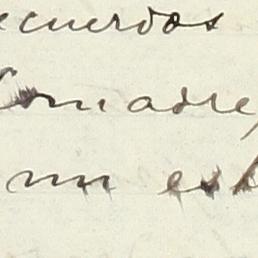 ecuerdos
Comadre,
un est